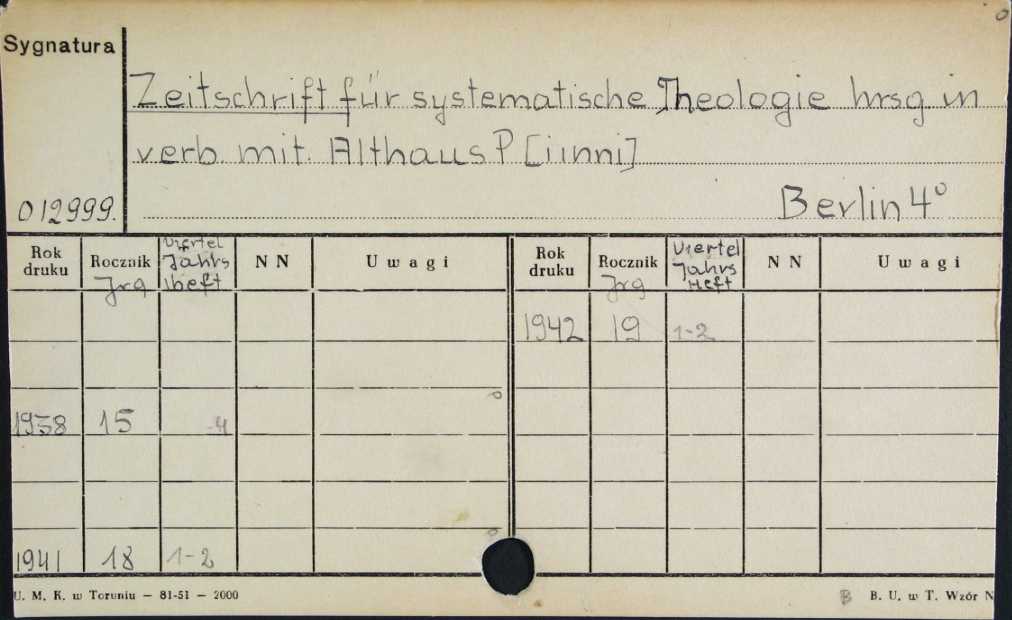 Sygnatura
Zeitschrift für systematische Theologie hrsg. in
verb. mit. Althaus P [i inni]
012999.
Berlin 4°
Rok druku Rocznik Jrg Viertel Jahrs heft NN Uwagi Rok druku Rocznik Jrg Viertel Jahrs Heft NN Uwagi
1942 19 1-2
1938 15 -4
1941 18 1-2
U. M. K. w Toruniu — 81-51 — 2000
B B. U. w T. Wzór N